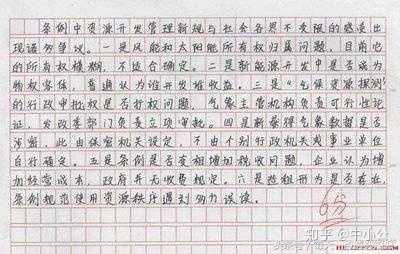 条例中资源开发管理新规与社会各界不受限的感走出
现诸多争议。一是风能和太阳能所有权归属问题,目前它
的所有权模糊,不适合确定。二是新能源开发中是否成为
物权客体,普遍认为谁开发谁收益。三是"气候资源探测"
的行政审批权是否扩权问题,气象主管机构负责可行性论
证,发改委部门负责立项审批。四是新获得气象数据是否
涉密,此由保密机关设定,不由个别行政机关或事业单位
自行确定。五是条例是否变相增加税收问题,企业认为增
加经营成本,政府并无收费规定。六是造租形为是否存在,
条例规范使用资源秩序遭到多方误读。
65
知乎 @中小公